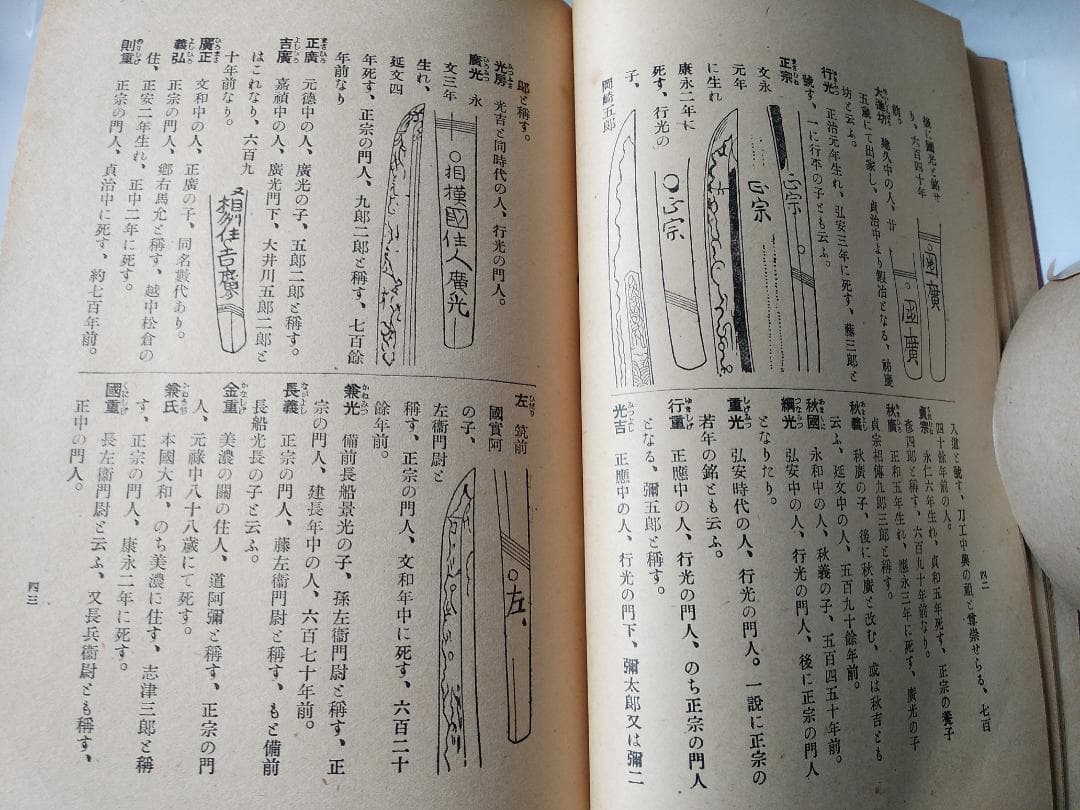 後に國光と銘せ
り、六百四十年
前。
國廣
國廣
大進坊 建久中の人、廿
五歳にて出家し、貞治中より鍛冶となる、祐慶
坊と云ふ。
行光 ゆきみつ 正治元年生れ、弘安三年に死す、藤三郎と
號す、一に行本の子とも云ふ。
正宗 まさむね 文永
元年
に生れ
康永二年に
死す、行光の
子、
岡崎五郎
正宗
正宗
正宗
四二
入道と號す、刀工中興の祖と尊崇せらる、七百
四十餘年前の人。
貞宗 さだむね 永仁六年生れ、貞和五年死す、正宗の養子
彦四郎と稱す、六百九十餘年前なり。
秋廣 あきひろ 正和五年生れ、應永三年に死す、廣光の子
貞宗相傳九郎三郎と稱す。
秋義 あきよし 秋廣の子、後に秋廣と改む、或は秋吉とも
云ふ、延文中の人、五百九十餘年前。
秋國 あきくに 永和中の人、秋義の子、五百四五十年前。
綱光 つなみつ 弘安中の人、行光の門人、後に正宗の門人
となりたり。
重光 しげみつ 弘安時代の人、行光の門人。一說に正宗の
若年の銘とも云ふ。
行重 ゆきしげ 正應中の人、行光の門人、のち正宗の門人
となる、彌五郎と稱す。
光吉 みつよし 正應中の人、行光の門下、彌太郎又は彌二
郎と稱す。
光房 みつふさ 光吉と同時代の人、行光の門人。
廣光 ひろみつ 永
文三年
生れ、
延文四
年死す、正宗の門人、九郎二郎と稱す、七百餘
年前なり
相模國住人廣光
正廣 まさひろ 元德中の人、廣光の子、五郎二郎と稱す。
吉廣 よしひろ 嘉禎中の人、廣光門下、大井川五郎二郎と
はこれなり、六百九
十年前なり。
相州住吉廣
廣正 ひろまさ 文和中の人、正廣の子、同名數代あり。
義弘 よしひろ 正宗の門人、鄕右馬允と稱す、越中松倉の
住、正安二年生れ、正中二年に死す。
則重 のりしげ 正宗の門人、貞治中に死す、約七百年前。
左 ひだり 筑前
國實阿
の子、
左衞門尉と
稱す、正宗の門人、文和年中に死す、六百二十
餘年前。
左
兼光 かねみつ 備前長船景光の子、孫左衞門尉と稱す、正
宗の門人、建長年中の人、六百七十年前。
長義 ながよし 正宗の門人、藤左衞門尉と稱す、もと備前
長船光長の子と云ふ。
金重 かなしげ 美濃の關の住人、道阿彌と稱す、正宗の門
人、元祿中八十八歲にて死す。
兼氏 かねうぢ 本國大和、のち美濃に住す、志津三郎と稱
す、正宗の門人、康永二年に死す。
國重 くにしげ 長左衞門尉と云ふ、又長兵衞尉とも稱す、
正中の門人。
四三